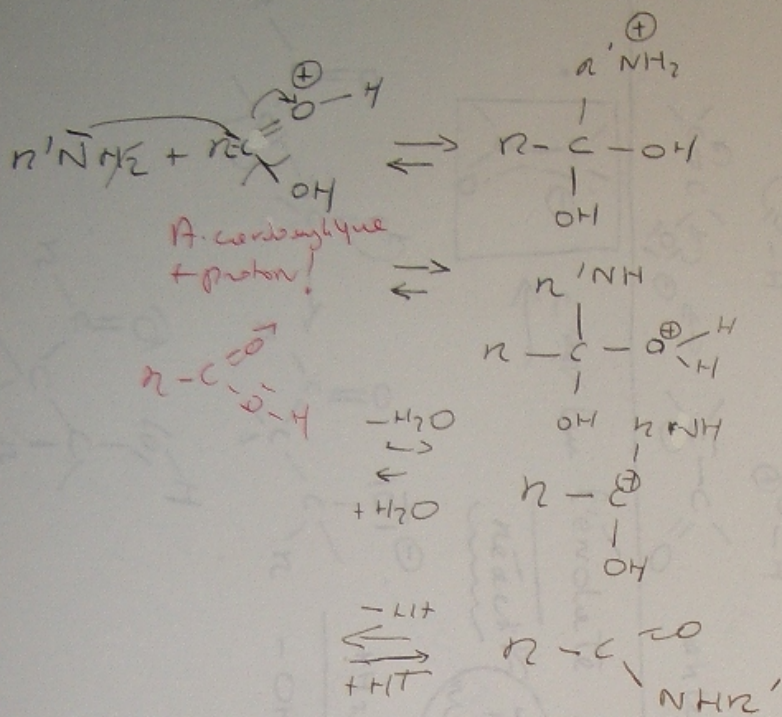 R'NH2 + R-C=O-H ⇌ R-C-OH
⊕
R'NH2
⊕
OH
OH
A. carboxylique
+ proton!
⇌
R'NH
R-C-O-H
⊕
H
OH
R-C=O
O-H
-H2O
⇌
+H2O
R NH
R-C
⊕
OH
-H+
⇌
+H+
R-C=O
NHR'